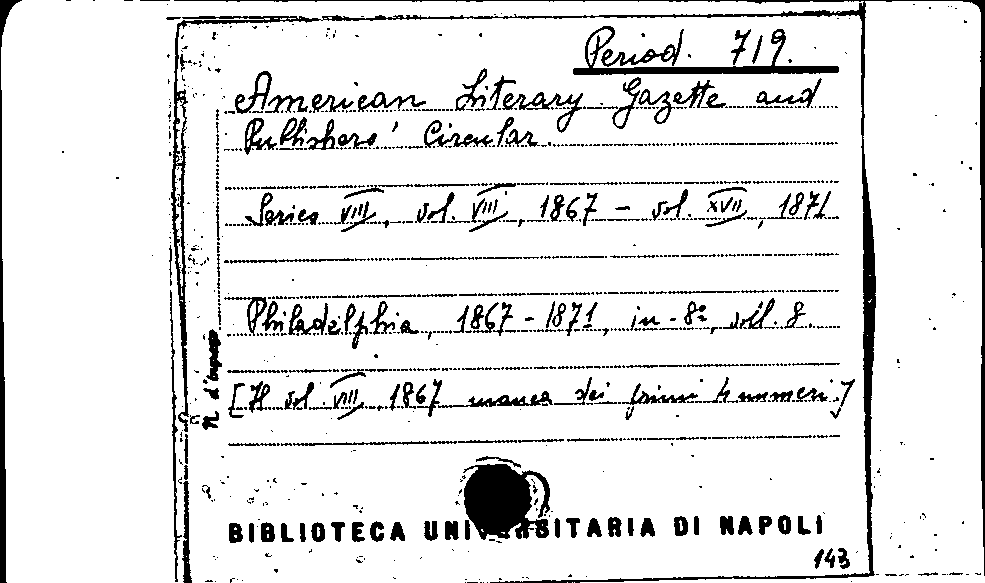 Period. 719.
American Literary Gazette and
Publishers' Circular.
Series VIII, vol. VIII, 1867 - vol. XVII, 1871
Philadelphia, 1867-1871, in-8º, voll. 8.
[Il vol. VIII, 1867 manca dei primi 4 numeri.]
N. d'ingresso
BIBLIOTECA UNIVERSITARIA DI NAPOLI
143